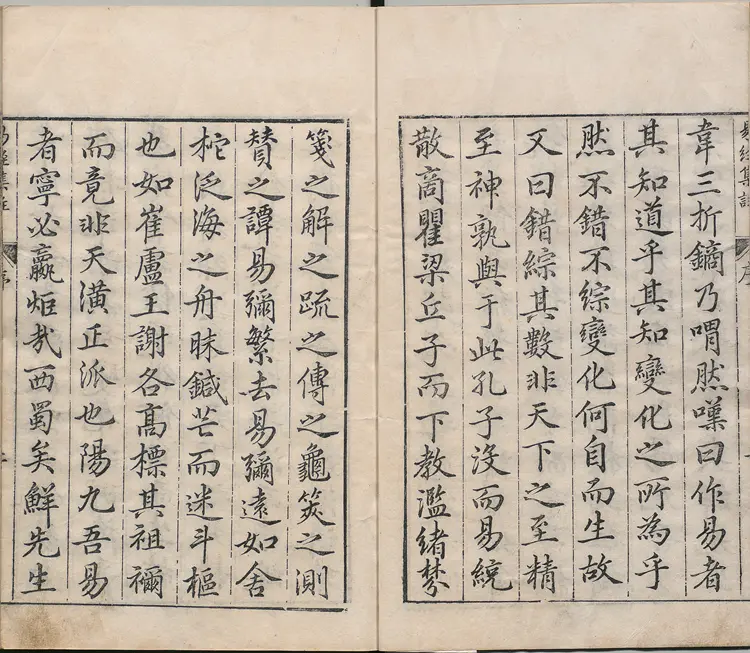 韋三折鏑乃喟然嘆曰作易者
其知道乎其知變化之所為乎
然不錯不綜變化何自而生故
又曰錯綜其數非天下之至精
至神孰與于此孔子沒而易統
散商瞿梁丘子而下教濫緒棼
箋之解之疏之傳之龜筴之測
贊之譚易彌繁去易彌遠如舍
柁泛海之舟昧鍼芒而迷斗樞
也如崔盧王謝各高標其祖禰
而竟非天潢正派也陽九吾易
者寧必嬴炬哉西蜀矣鮮先生
易經集註
序